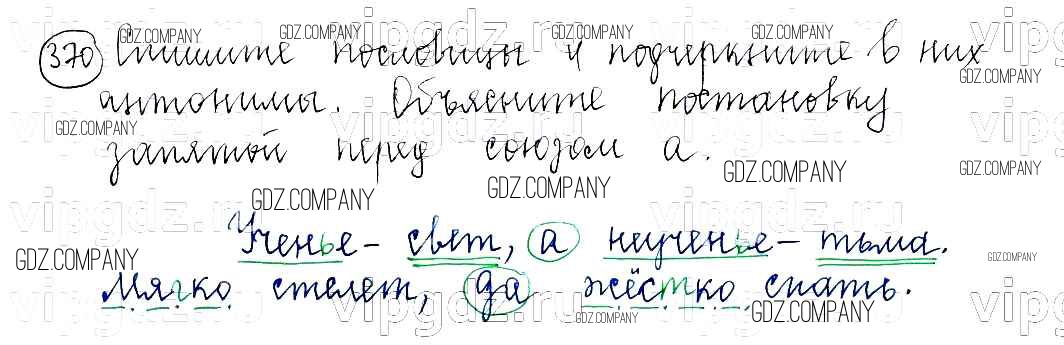 370 Спишите пословицы и подчеркните в них
антонимы. Объясните постановку
запятой перед союзом а.
Ученье - свет, а неученье - тьма.
Мягко стелет, да жёстко спать.
GDZ.COMPANY
vipgdz.ru